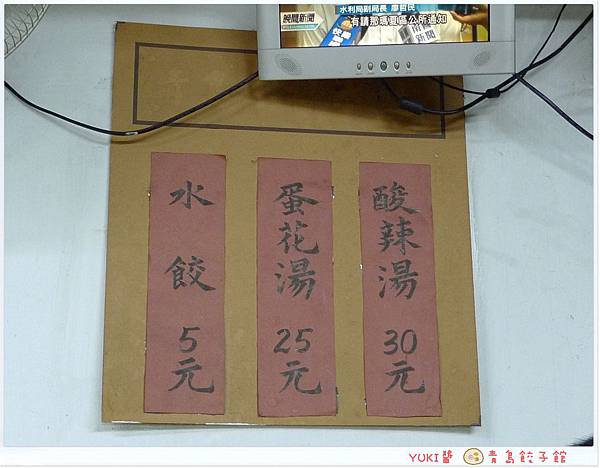 水利局副局長 廖哲民
晚間新聞
有請那瑪夏區公所通知
酸辣湯 30元
蛋花湯 25元
水餃 5元
YUKI醬 青島餃子館